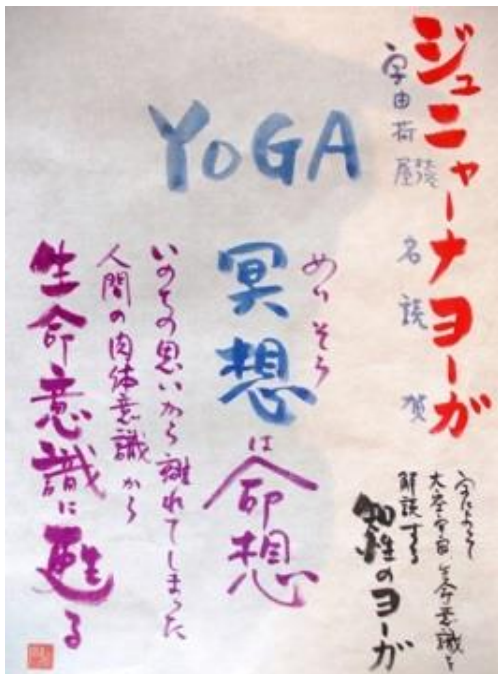 ジュニャーナヨーガ
字由荷屋 名読賀
字によって
宇宙、生命意識を
解読する
知性のヨーガ
YOGA
めいそう
冥想は命想
いのちの思いから離れてしまった
人間の肉体意識から
生命意識に甦る